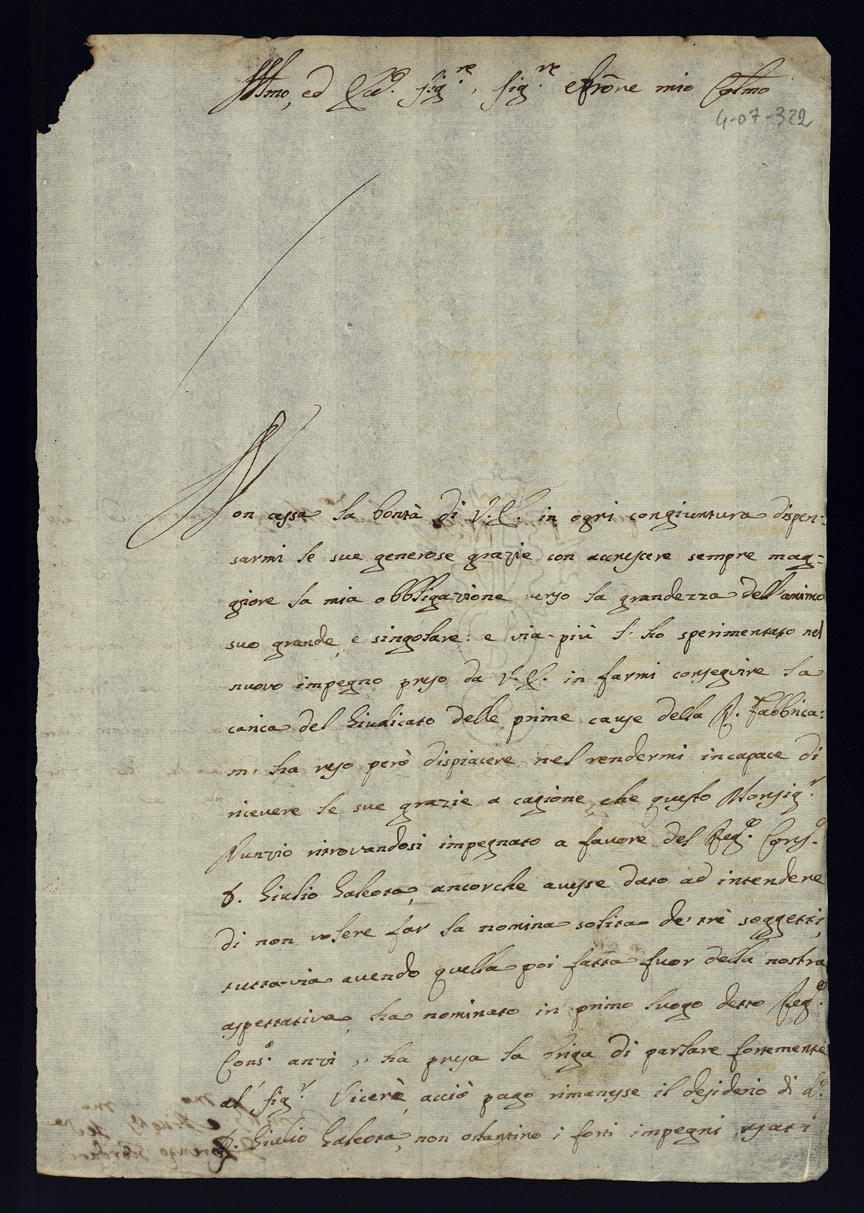 Illmo, ed Ecc.mo Sig.re, Sig.re e Prone mio Colmo
4-07-322
Non cessa la bontà di V.E. in ogni congiuntura dispen:
sarmi le sue generose grazie con accrescere sempre mag=
giore la mia obbligazione verso la grandezza dell'animo
suo grande, e singolare: e via-più l'ho sperimentato nel
nuovo impegno preso da V.E. in farmi conseguire la
carica del Giudicato delle prime cause della R. Fabbrica:
mi ha reso però dispiacere nel rendermi incapace di
ricevere le sue grazie a cagione che questo Monsig.r
Nunzio ritrovandosi impegnato a favore del Reg.o Cons.o
D. Giulio Galeota, ancorche avesse dato ad intendere
di non volere far la nomina solita de' trè soggetti,
tutta-via avendo quella poi fatta fuor della nostra
aspettativa, ha nominato in primo luogo detto Reg.o
Cons.o anzi si ha presa la briga di parlare fortemente
al Sig.r Vicerè, acciò pago rimanesse il desiderio di d.o
D. Giulio Galeota, non ostantino i forti impegni usati